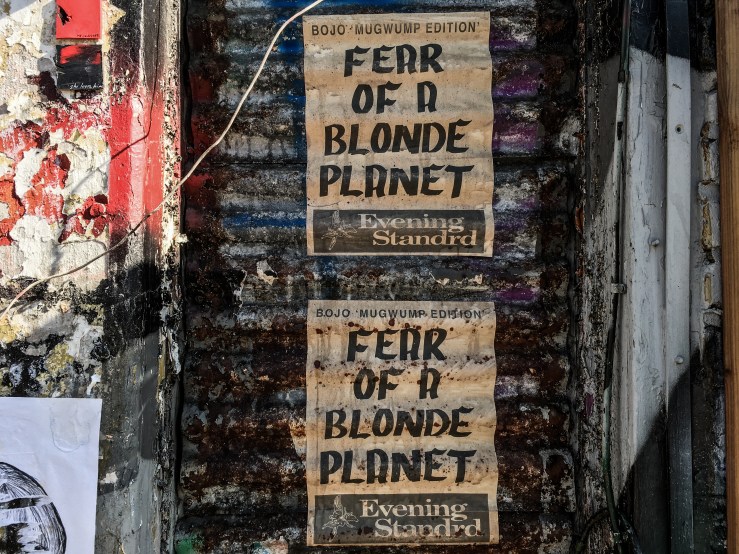 BOJO 'MUGWUMP EDITION'
FEAR
OF A
BLONDE
PLANET
Evening
Standrd
BOJO 'MUGWUMP EDITION'
FEAR
OF A
BLONDE
PLANET
Evening
Standrd